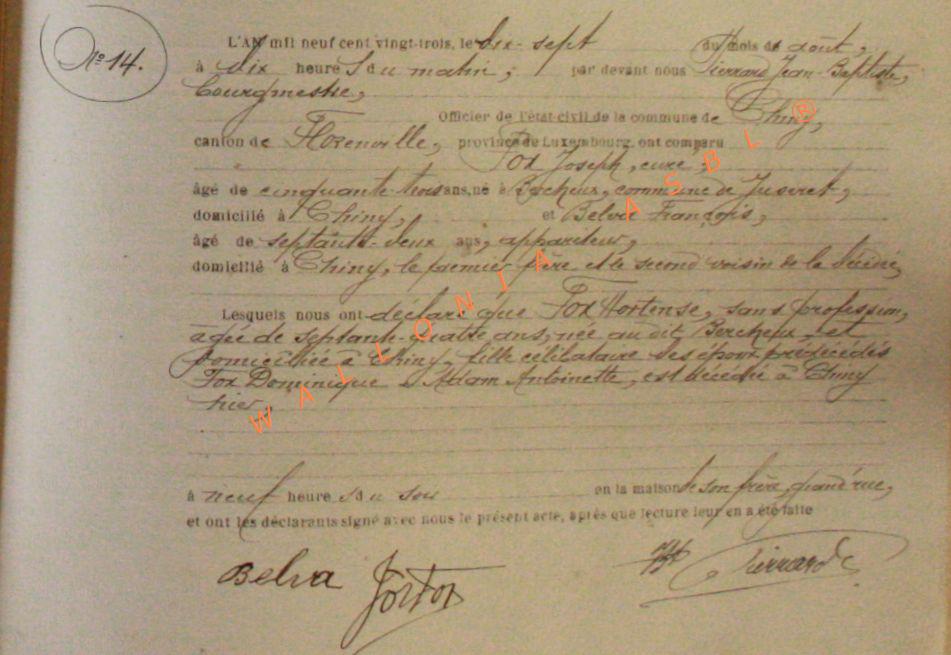 N° 14.
L'AN mil neuf cent vingt-trois, le dix-sept du mois de août,
à dix heures du matin, par devant nous Pierrard Jean-Baptiste,
bourgmestre,
Officier de l'état-civil de la commune de Chiny,
canton de Florenville, province de Luxembourg, ont comparu
Fox Joseph, curé,
âgé de cinquante-trois ans, né à Bercheux, commune de Juseret,
domicilié à Chiny, et Belva François,
âgé de septante-deux ans, appariteur,
domicilié à Chiny, le premier frère et le second voisin de la décédée,
Lesquels nous ont déclaré que Fox Hortense, sans profession,
âgée de septante-quatre ans, née au dit Bercheux et
domiciliée à Chiny, fille célibataire des époux prédécédés
Fox Dominique & Adam Antoinette, est décédée à Chiny
hier,
à neuf heures du soir en la maison de son frère, grand'rue,
et ont les déclarants signé avec nous le présent acte, après que lecture leur en a été faite
Belva Jos Fox JB Pierrard
WALLONIA ASBL ®